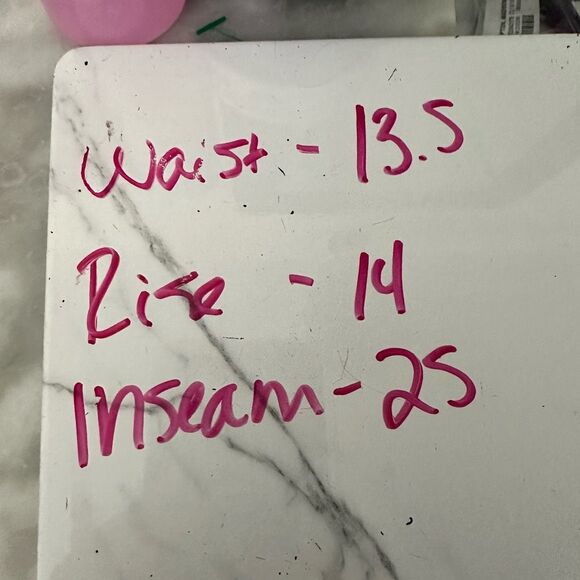 Waist - 13.5
Rise - 14
Inseam - 25